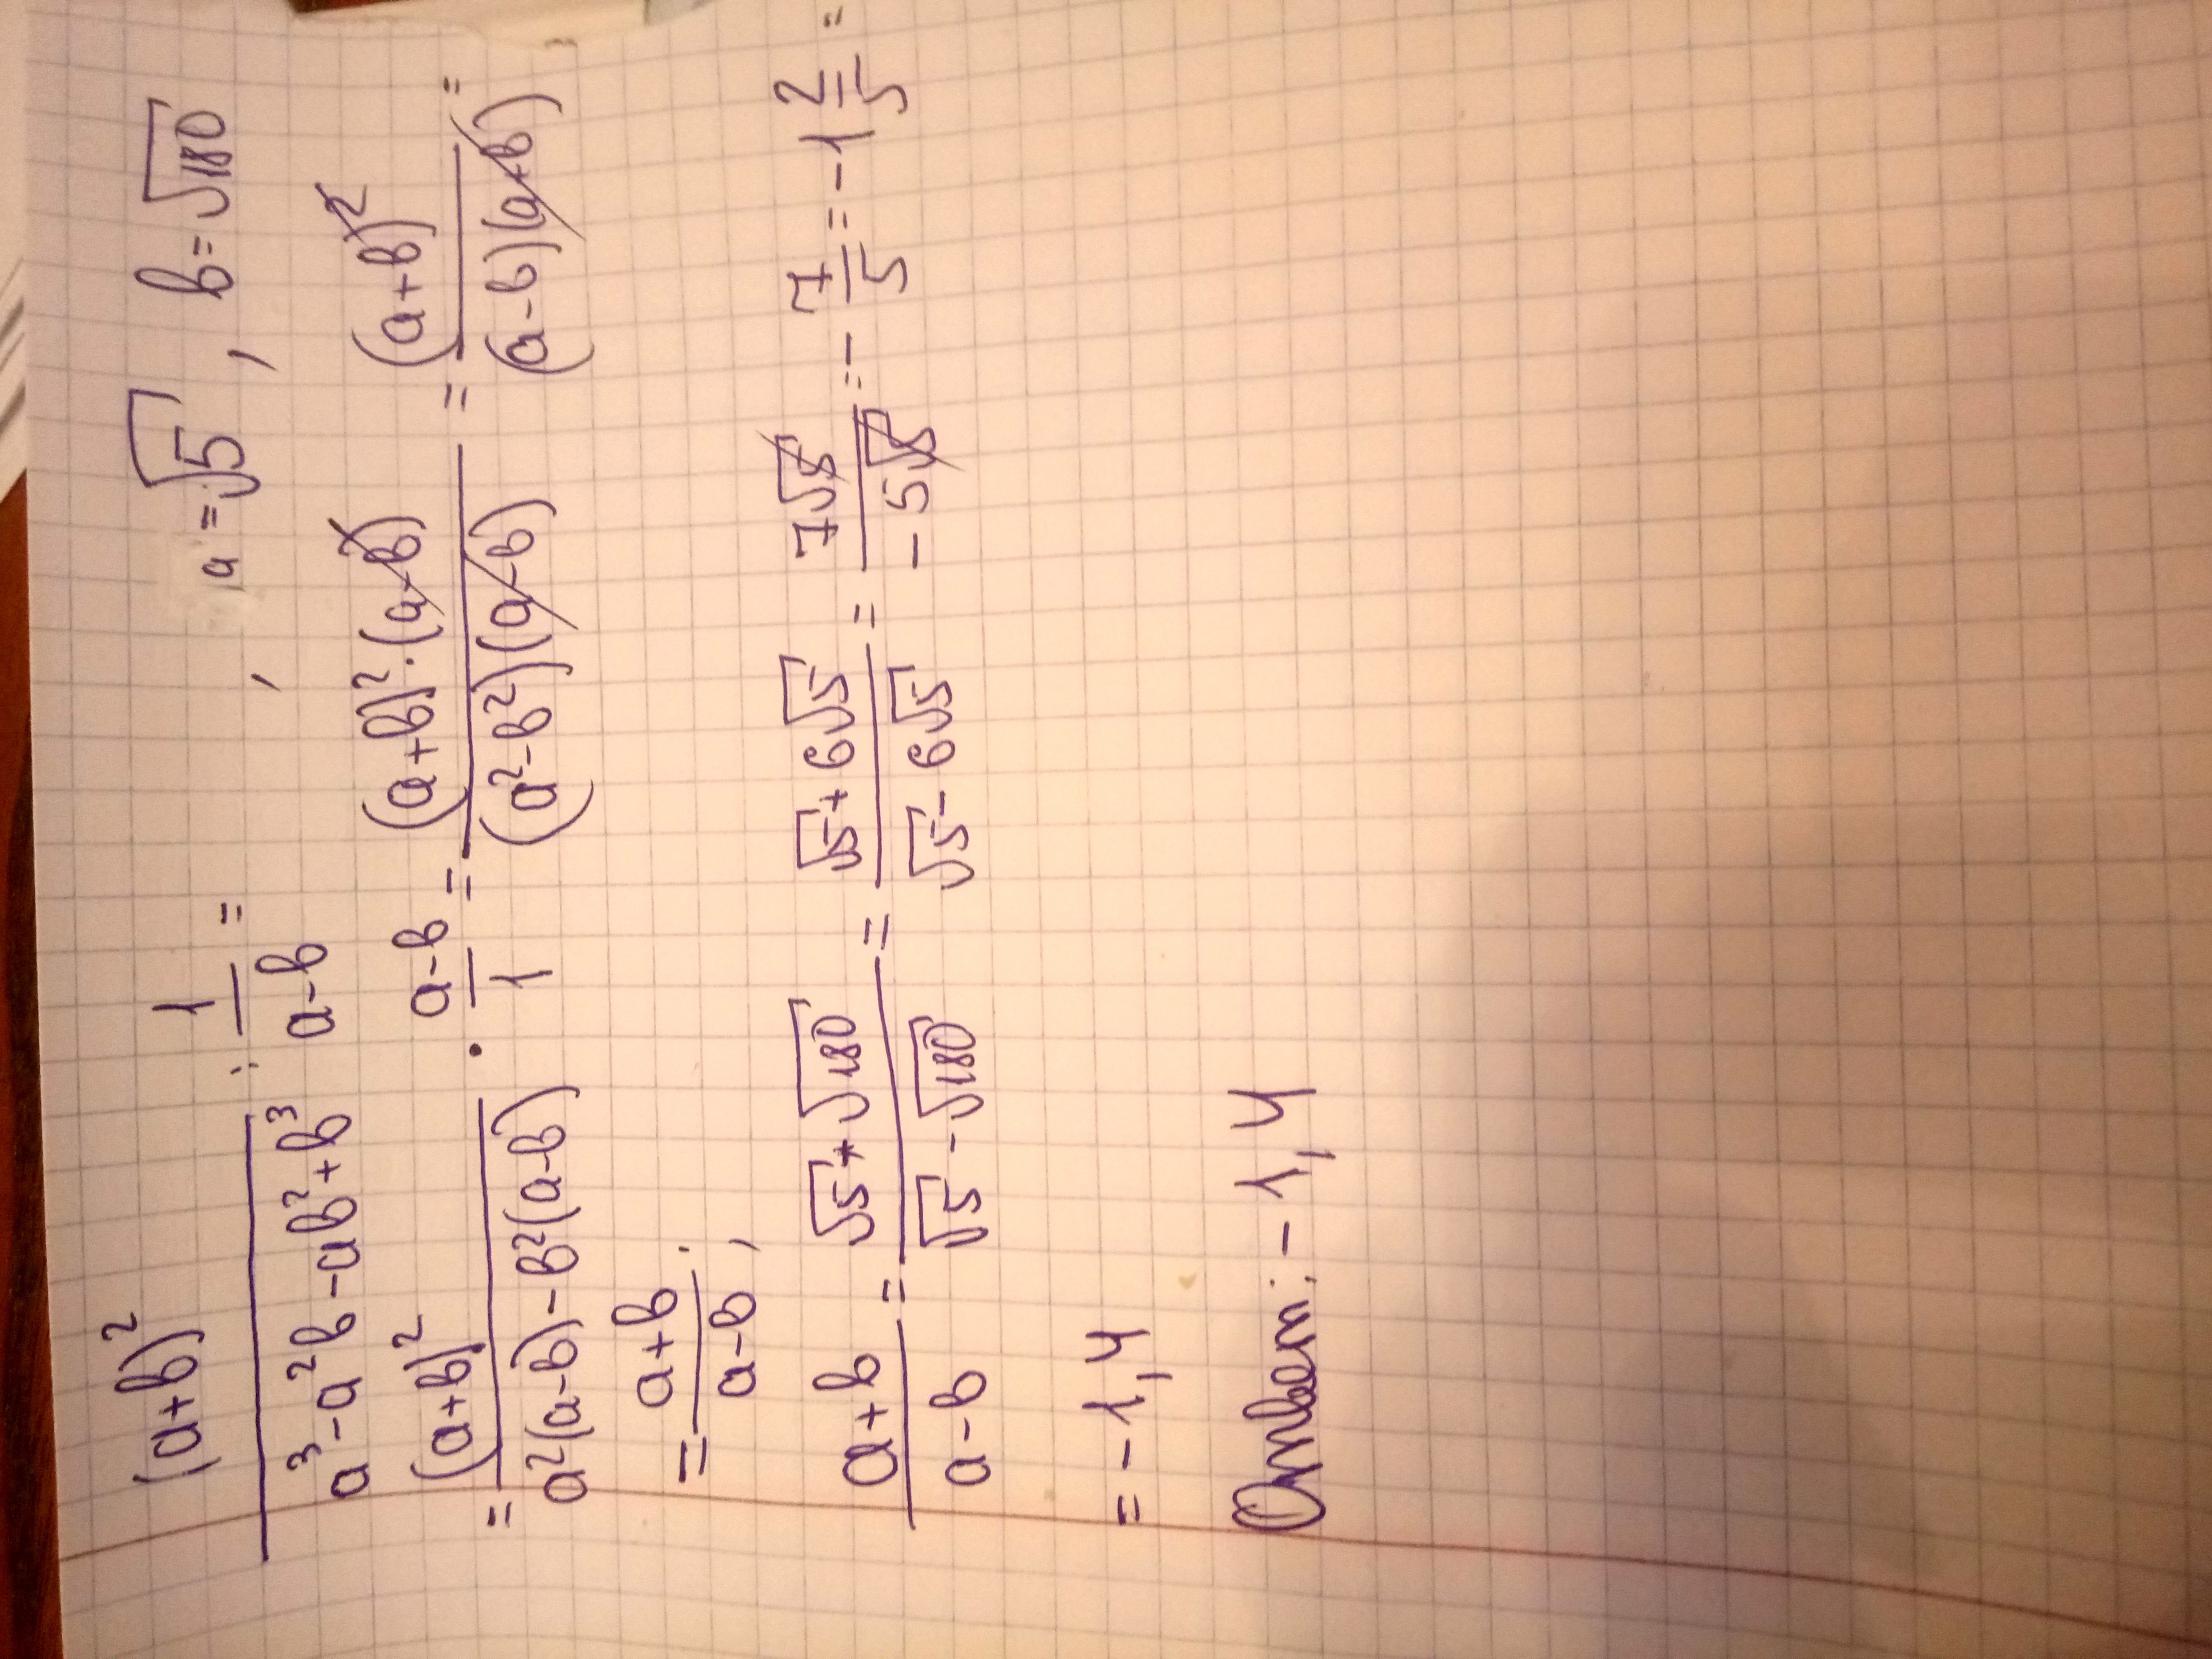 (a+b)² / (a³-a²b-ab²+b³) : 1/(a-b) = , a=√5, b=√180
= (a+b)² / (a²(a-b)-b²(a-b)) · (a-b)/1 = (a+b)²·(a-b) / (a²-b²)(a-b) = (a+b)² / (a-b)(a+b) =
= (a+b)/(a-b);
(a+b)/(a-b) = (√5+√180)/(√5-√180) = (√5+6√5)/(√5-6√5) = 7√5/-5√5 = -7/5 = -1 2/5 =
= -1,4
Ответ: -1,4